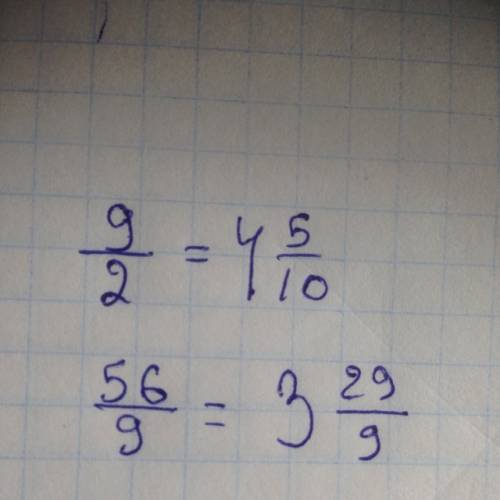 9/2 = 4 5/10
56/9 = 3 29/9